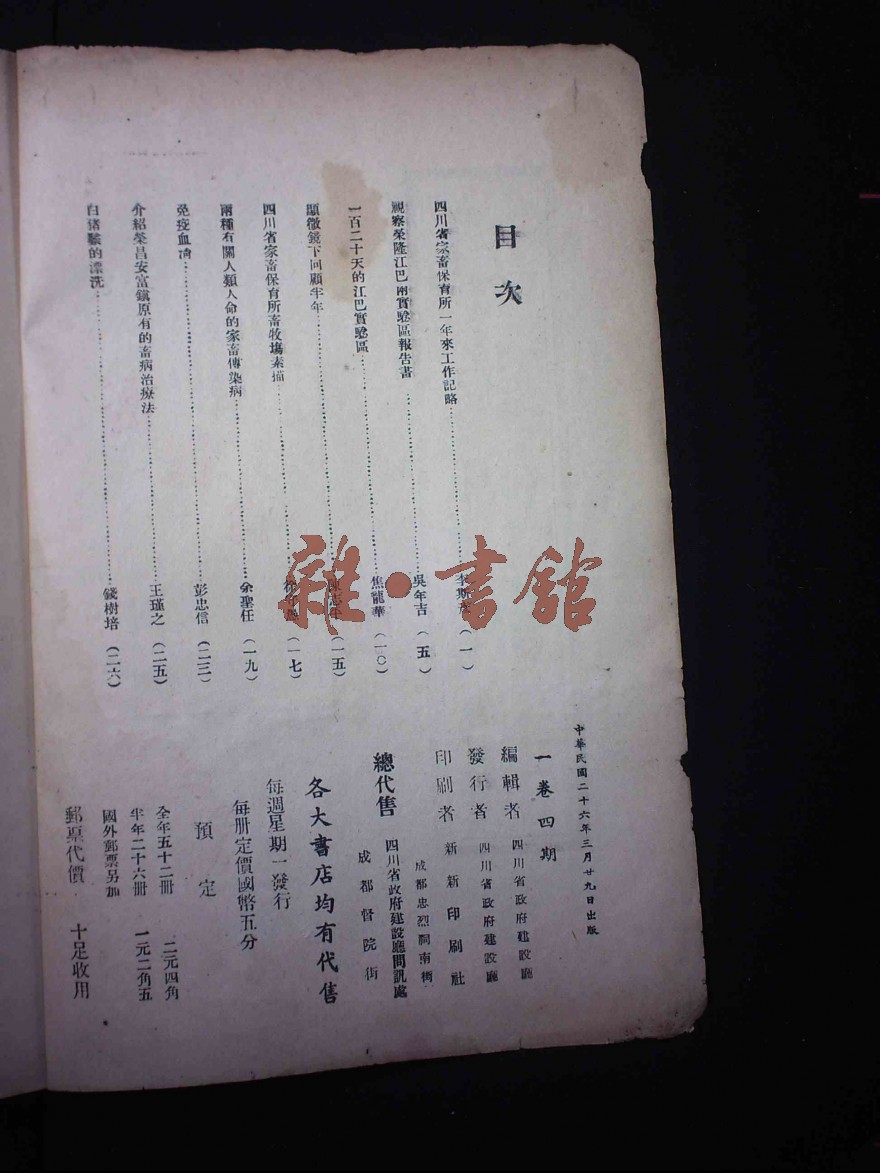 目次
四川省家畜保育所一年來工作記略 李斯 (一)
視察榮隆江巴兩實驗區報告書 吳年吉 (五)
一百二十天的江巴實驗區 焦龍華 (一〇)
顯微鏡下回顧半年 (一五)
四川省家畜保育所畜牧場素描 (一七)
兩種有關人類人命的家畜傳染病 余聖任 (一九)
免疫血清 彭忠信 (二三)
介紹榮昌安富鎮原有的畜病治療法 王瑾之 (二五)
白猪鬃的漂洗 錢樹培 (二六)
中華民國二十六年三月廿九日出版
一卷四期
編輯者 四川省政府建設廳
發行者 四川省政府建設廳
印刷者 新新印刷社
成都忠烈祠南街
總代售 四川省政府建設廳問訊處
成都督院街
各大書店均有代售
每週星期一發行
每册定價國幣五分
預定
全年五十二册 二元四角
半年二十六册 一元二角五
國外郵票另加
郵票代價 十足收用
雜·書館